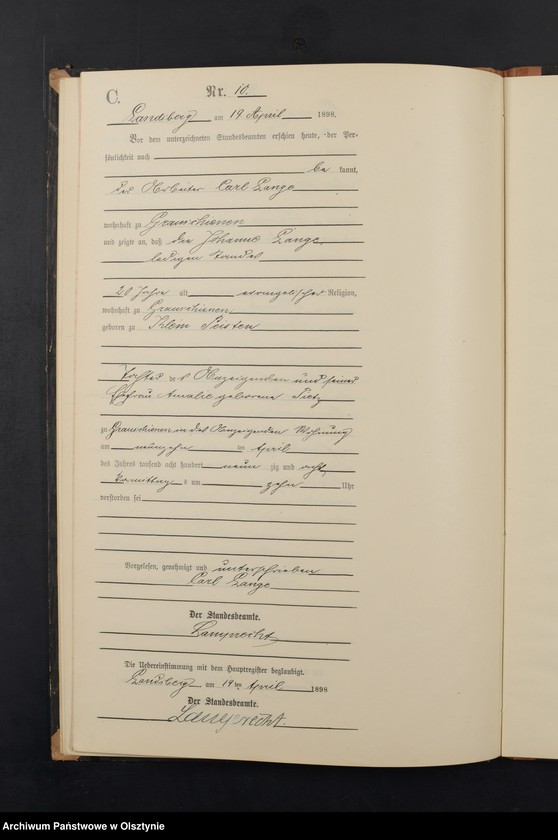 C.
Nr. 10.
Landsberg am 19 April 1898.
Vor dem unterzeichneten Standesbeamten erschien heute, der Per-
sönlichkeit nach
be kannt,
der Arbeiter Carl Lange
wohnhaft zu Grauschienen
und zeigte an, daß die Johanne Lange,
ledigen Standes
20 Jahre alt evangelischer Religion,
wohnhaft zu Grauschienen,
geboren zu Klein Peisten
Tochter des Anzeigenden und seiner
Ehefrau Amalie geborene Tietz
zu Grauschienen in des Anzeigenden Wohnung
am neunzehn ten April
des Jahres tausend acht hundert neun zig und acht
Vormittags um zehn Uhr
verstorben sei
Vorgelesen, genehmigt und unterschrieben
Carl Lange
Der Standesbeamte.
Lamprecht
Die Uebereinstimmung mit dem Hauptregister beglaubigt.
Landsberg am 19 ten April 1898
Der Standesbeamte.
Lamprecht.
Archiwum Państwowe w Olsztynie